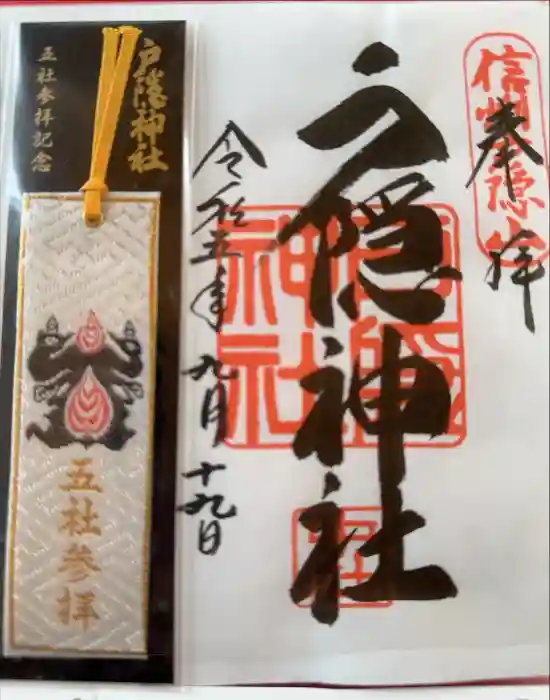 奉拝
信州戸隠山
戸隠神社
戸隠神社
令和五年九月十九日
戸隠神社
五社参拝記念
五社参拝